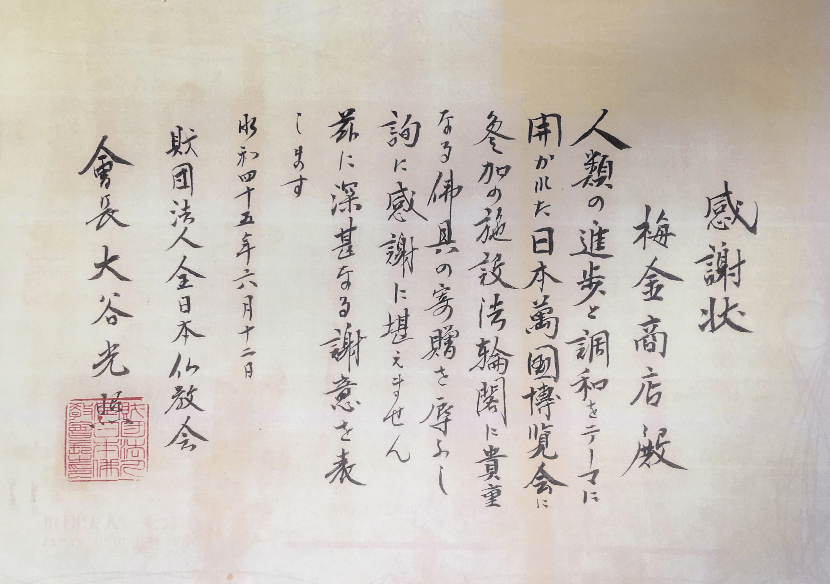 感謝状
梅金商店殿
人類の進歩と調和をテーマに
開かれた日本萬国博覧会に
参加の施設法輪閣に貴重
なる佛具の寄贈を辱ふし
詢に感謝に堪えません
茲に深甚なる謝意を表
します
昭和四十五年六月十二日
財団法人全日本仏教会
會長大谷光